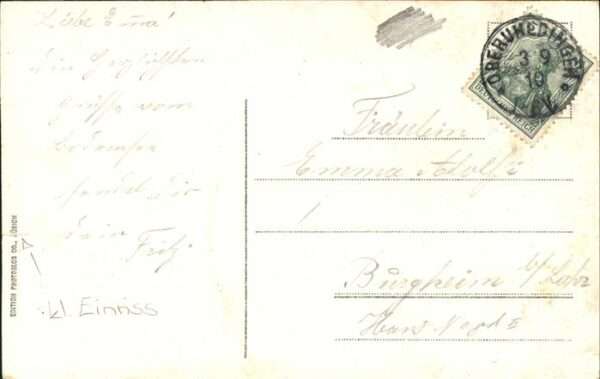 Liebe Emma!
die herzlichsten
Grüsse vom
Bodensee
sendet dir
dein
Fritz
kl. Einriss
EDITION PHOTOGLOB CO., ZÜRICH
OBERUHLDINGEN
3 9
10
Fräulein
Emma
Burgheim b/ Lahr
Haus No